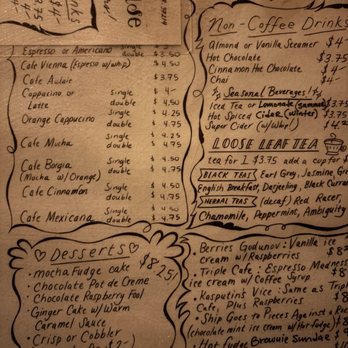 Espresso or Americano single
double $ 3.50
Cafe Vienna (Espresso w/whip) $ 4.50
Cafe Aulaie $ 3.75
Cappucino or single $ 4-
Latte double $ 4.50
Orange Cappucino single $ 4.25
double $ 4.75
Cafe Mocha single $ 4-
double $ 4.75
Cafe Borgia single $ 4.50
(Mocha w/Orange) double $ 4.75
Cafe Cinnamon single $ 4-
double $ 4.50
Cafe Mexicana single $ 4.50
double $ 4.75
Non-Coffee Drinks
Almond or Vanilla Steamer $4-
Hot Chocolate $3.75
Cinnamon Hot Chocolate $4-
Chai $4-
Seasonal Beverages!
Iced Tea or Lemonade (summer) $3.75
Hot Spiced Cider (winter) $3.75
Super Cider (w/Whip!)
LOOSE LEAF TEA
tea for 1 $3.75 add a cup for $
BLACK TEAS Earl Grey, Jasmine, Gre
English Breakfast, Darjeeling, Black Curran
HERBAL TEAS (decaf) Red Racer,
Chamomile, Peppermint, Ambiguity
Desserts
• mocha Fudge cake $8.25/
• Chocolate Pot de Creme
• Chocolate Raspberry Fool
• Ginger Cake w/Warm
Caramel Sauce
• Crisp or Cobbler
• Berries Godunov: Vanilla ice
cream w/Raspberries $8
• Triple Cafe: Espresso Madness
ice cream w/Coffee Syrup $8
• Rasputins Vice: Same as Triple
Cafe, Plus Raspberries
• Ship Goes to Pieces Against a Roc
(chocolate mint ice cream w/Hot fudge)
• Hot fudge Brownie Sundae $